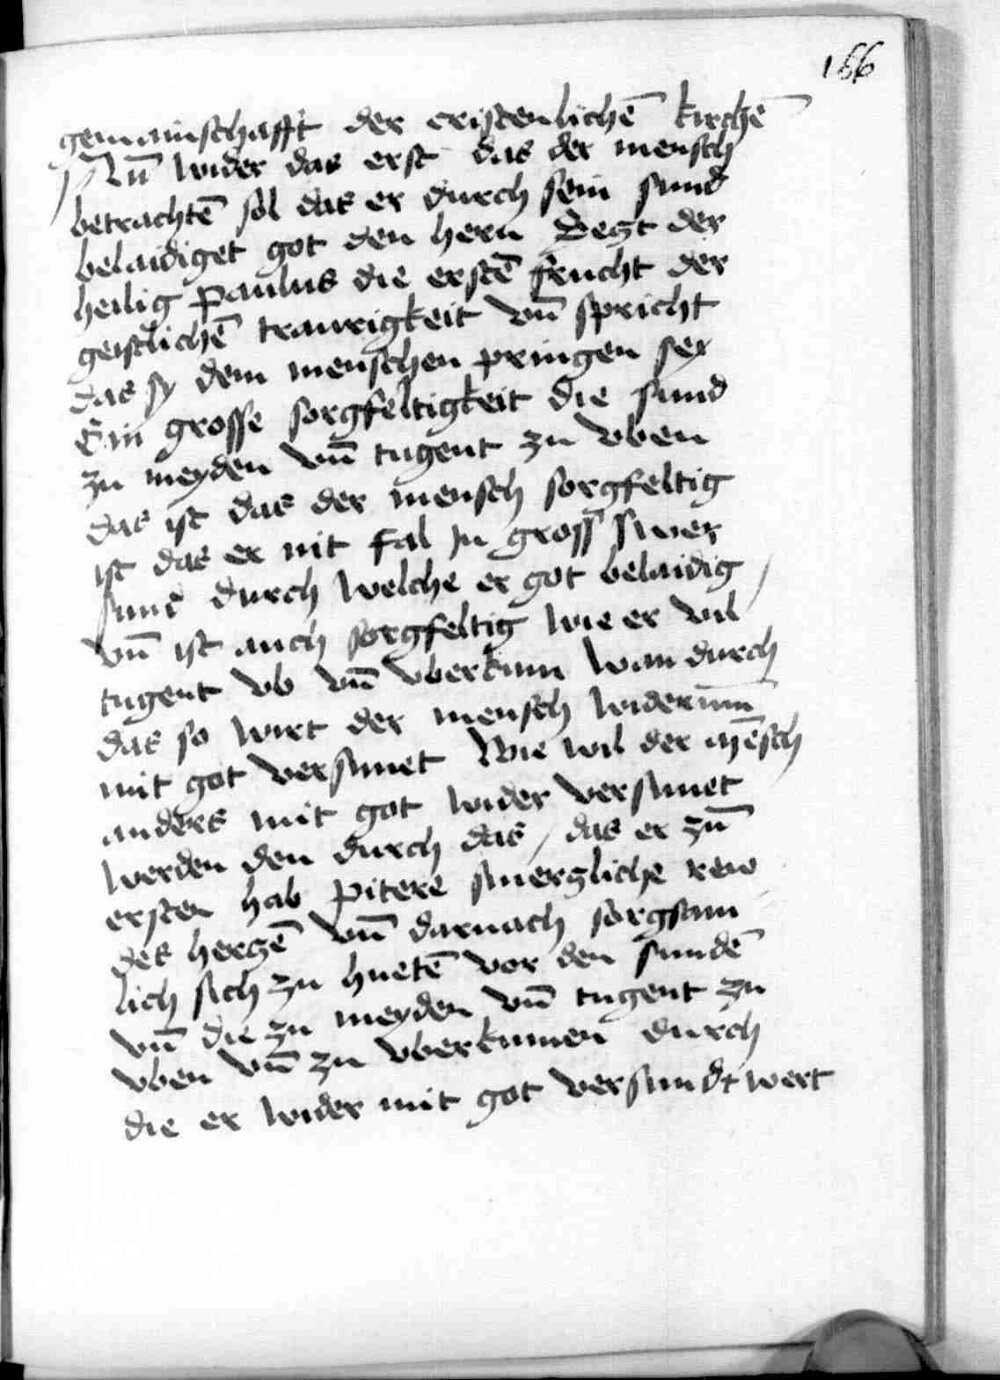 166
gemainschafft der cristenlichē kirchē
Nū wider das erst das der mensch
betrachtē sol das er durch sein sund
belaidiget got den hern Seczt der
heilig paulus die erstē frucht der
geistlichē traurigkeit vn̄ spricht
das sy dem menschen pringen sey
Ein grosse sorgfeltigkeit die sund
zu meyden vn̄ tugent zu vben
das ist das der mensch sorgfeltig
ist das er nit fal Jn gross swer
sund durch welche er got belaidig /
vn̄ ist auch sorgfeltig wie er vil
tugent vb vn̄ vberkum wan durch
das so wirt der mensch widerum̄
mit got versunet Wie wil der mēsch
anders mit got wider versunet
werden den durch das / das er zū
ersten hab pitere smerzliche rew
des herczē vn̄ darnach sorgsam
lich sich zu huetē vor den sundē
vn̄ die zu meyden vn̄ tugent zu
vben vn̄ zu vberkumen durch
die er wider mit got versundt wert